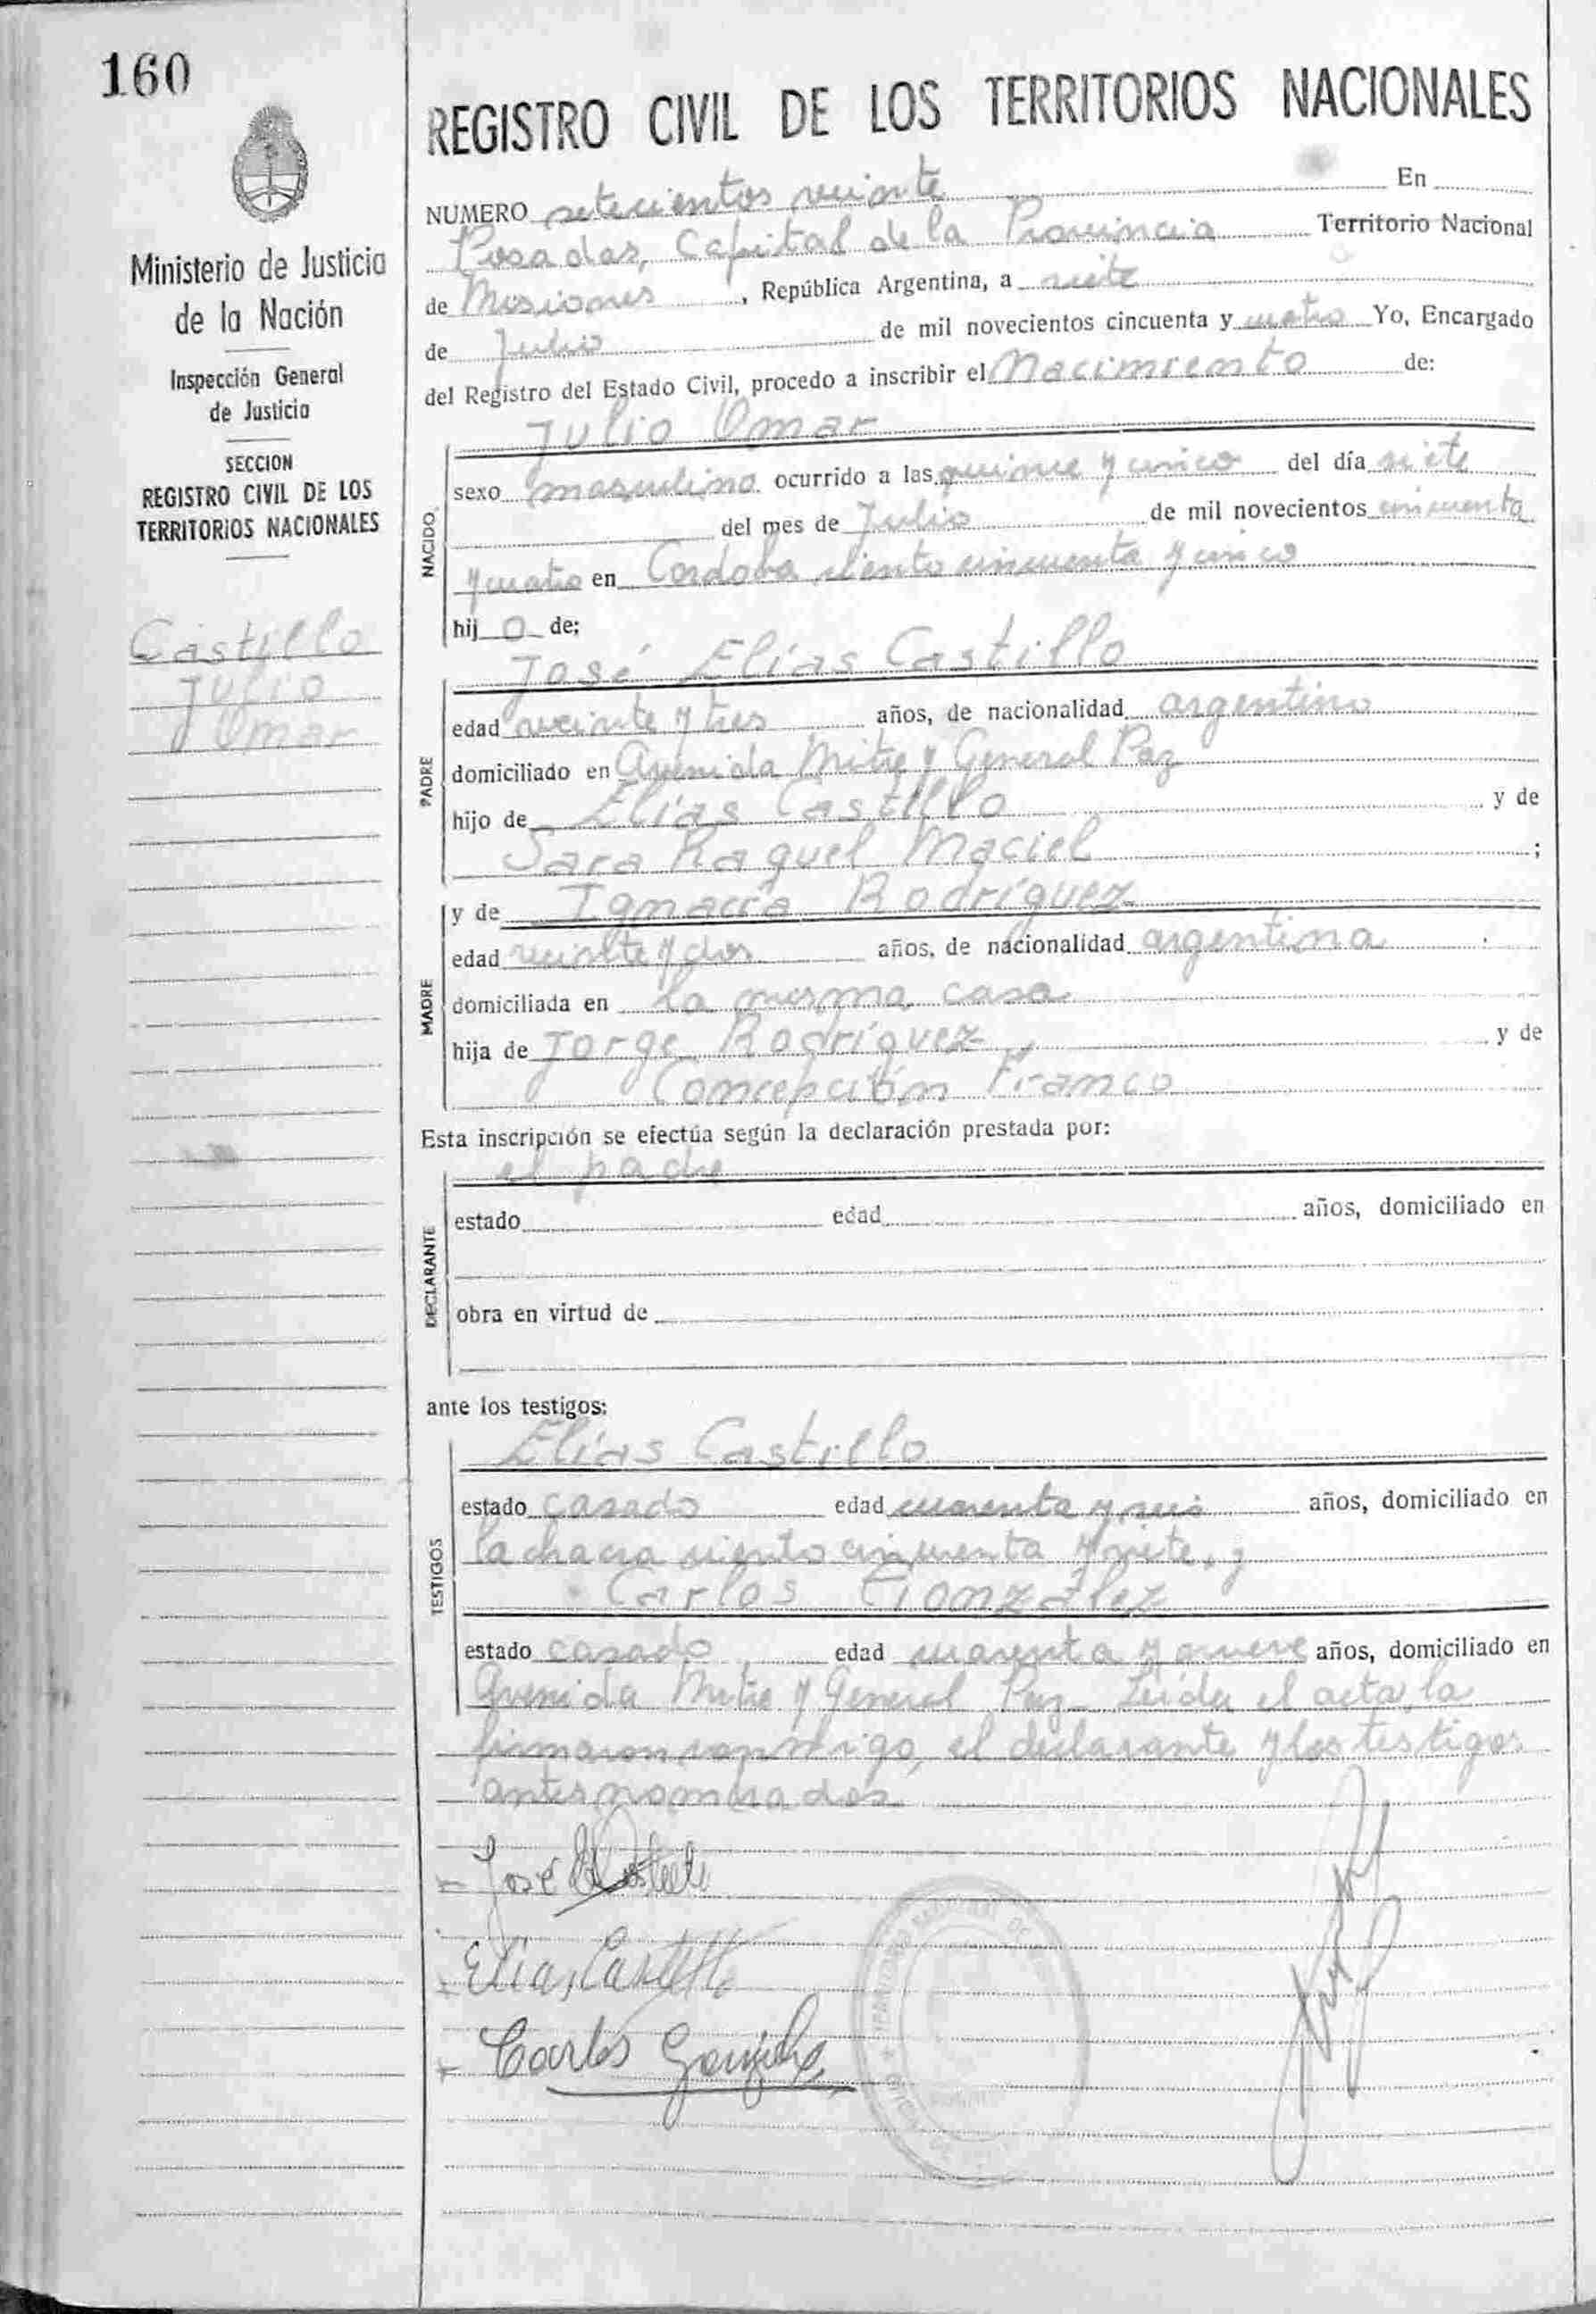 160
REGISTRO CIVIL DE LOS TERRITORIOS NACIONALES
Ministerio de Justicia
de la Nación
Inspección General
de Justicia
SECCION
REGISTRO CIVIL DE LOS
TERRITORIOS NACIONALES
Castillo
Julio
Omar
NUMERO setecientos veinte En
Posadas, Capital de la Provincia Territorio Nacional
de Misiones, República Argentina, a siete
de Julio de mil novecientos cincuenta y cuatro Yo, Encargado
del Registro del Estado Civil, procedo a inscribir el Nacimiento de:
Julio Omar
NACIDO
sexo masculino ocurrido a las quince y cinco del día siete
del mes de Julio de mil novecientos cincuenta
y cuatro en Cordoba ciento cincuenta y cinco
hij o de;
José Elías Castillo
PADRE
edad veinte y tres años, de nacionalidad argentino
domiciliado en Avenida Mitre y General Paz
hijo de Elías Castillo y de
Sara Raquel Maciel ;
y de Ignacia Rodríguez
MADRE
edad veinte y dos años, de nacionalidad argentina
domiciliada en la misma casa
hija de Jorge Rodríguez y de
Concepción Franco
Esta inscripción se efectúa según la declaración prestada por:
el padre
DECLARANTE
estado edad años, domiciliado en
obra en virtud de
ante los testigos:
Elías Castillo
TESTIGOS
estado casado edad cuarenta y seis años, domiciliado en
la chacra ciento cincuenta y siete, y
Carlos González
estado casado edad cuarenta y nueve años, domiciliado en
Avenida Mitre y General Paz. Leida el acta, la
firmaron conmigo, el declarante y los testigos
antes nombrados
José Castillo
Elias Castillo
Carlos González